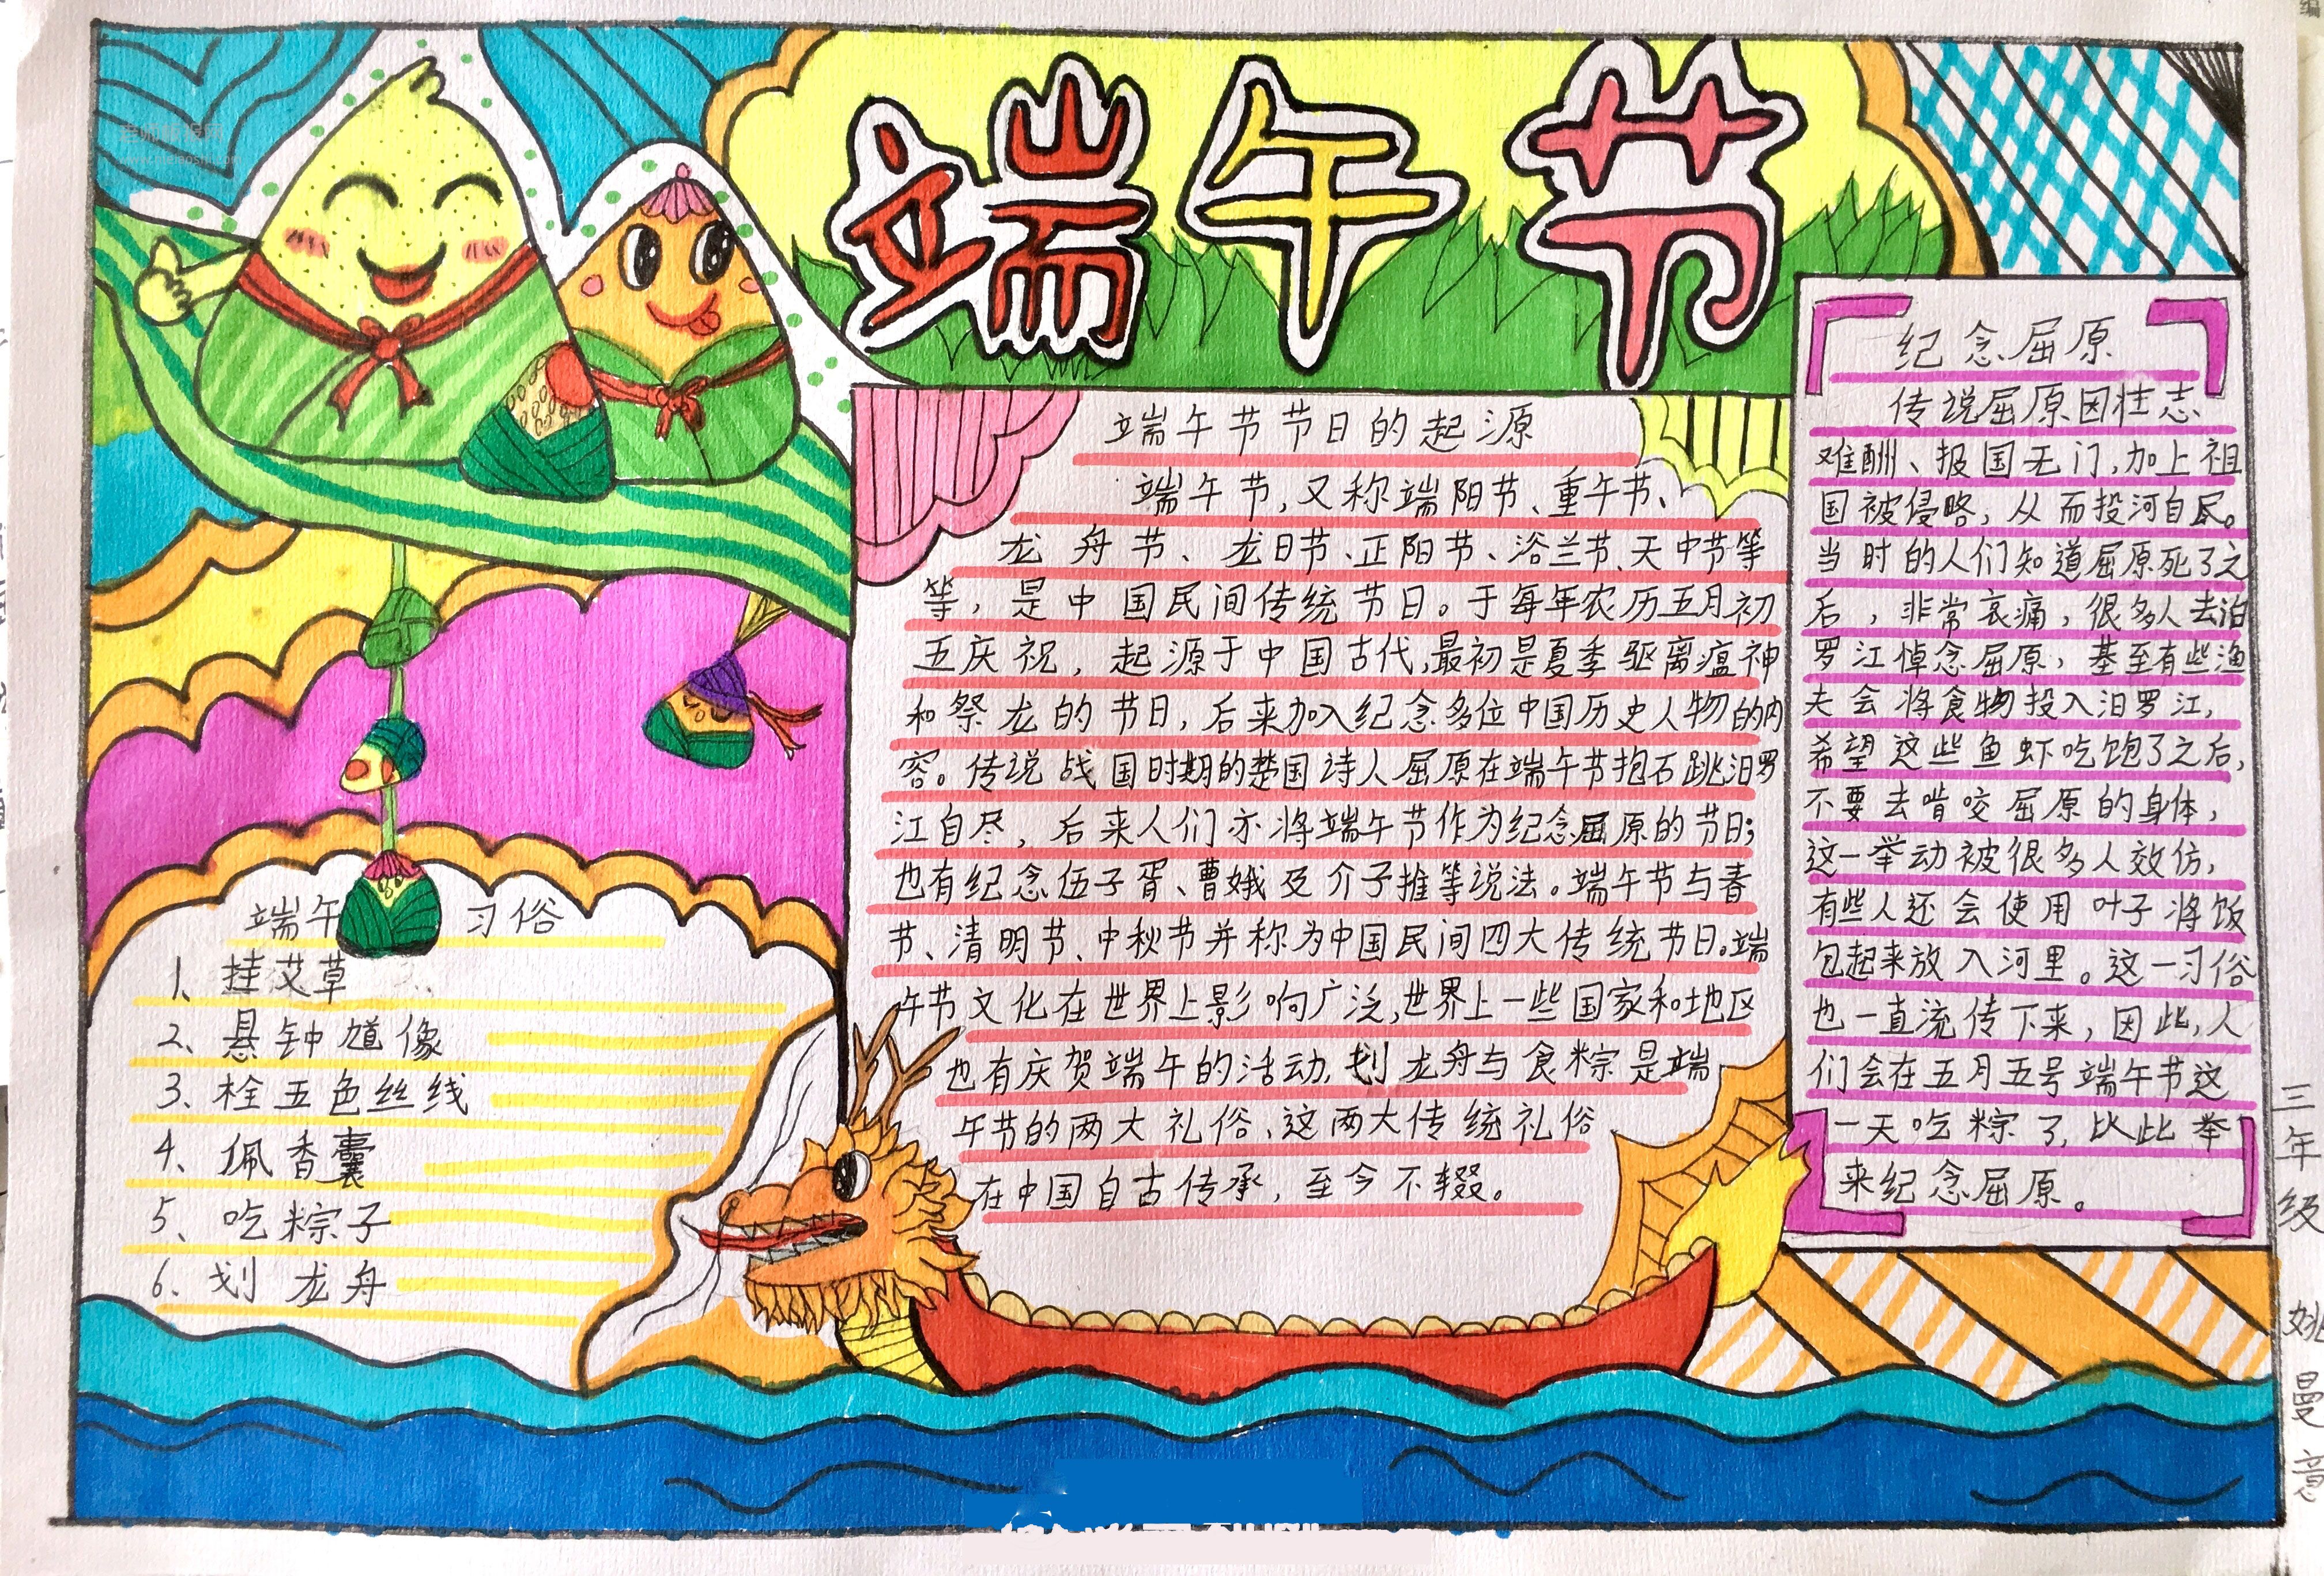 端午节
端午节节日的起源
端午节,又称端阳节、重午节、
龙舟节、龙日节、正阳节、浴兰节、天中节等
等，是中国民间传统节日。于每年农历五月初
五庆祝，起源于中国古代,最初是夏季驱离瘟神
和祭龙的节日，后来加入纪念多位中国历史人物的内
容。传说战国时期的楚国诗人屈原在端午节抱石跳汨罗
江自尽，后来人们亦将端午节作为纪念屈原的节日；
也有纪念伍子胥、曹娥及介子推等说法。端午节与春
节、清明节、中秋节并称为中国民间四大传统节日。端
午节文化在世界上影响广泛,世界上一些国家和地区
也有庆贺端午的活动,划龙舟与食粽是端
午节的两大礼俗、这两大传统礼俗
在中国自古传承，至今不辍。
纪念屈原
传说屈原因壮志
难酬、报国无门,加上祖
国被侵略，从而投河自
当时的人们知道屈原死了之
后，非常哀痛，很多人去泊
罗江悼念屈原，基至有些渔
夫会将食物投入汨罗江，
希望这些鱼虾吃饱了之后,
不要去啃咬屈原的身体，
这一举动被很多人效仿,
有些人还会使用叶子将饭
包起来放入河里。这一习俗
也一直流传下来，因此,人
们会在五月五号端午节这
一天吃粽了,比此举
来纪念屈原。
端午 习俗
1、挂艾草
2、悬钟馗像
3、栓五色丝线
4、佩香囊
5、吃粽子
6、划龙舟
三年级 姚曼意